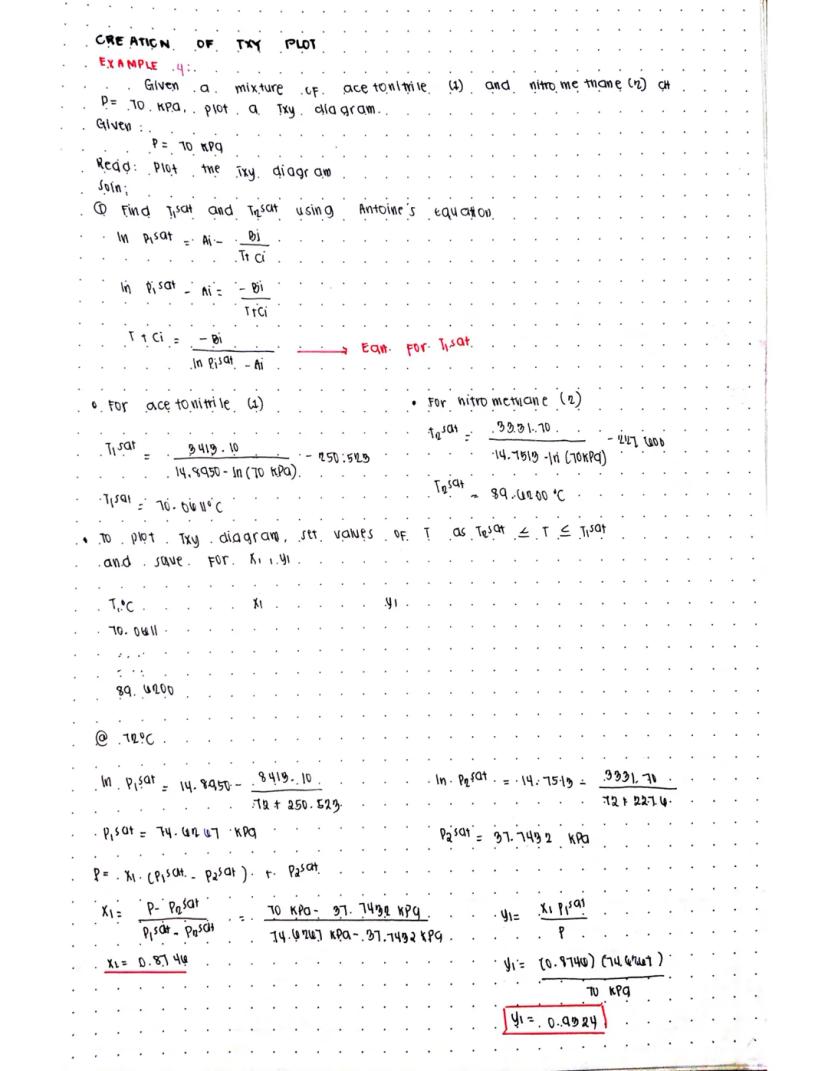 CREATION OF TXY PLOT
EXAMPLE 4:
Given a mixture of acetonitrile (1) and nitromethane (2) at
P= 70 KPa, plot a Txy diagram.
Given:
P= 70 KPa
Reqd: Plot the Txy diagram
Soln;
① Find T₁sat and T₂sat using Antoine's equation
ln Pisat = Ai - Bi / T+Ci
ln Pisat - Ai = -Bi / T+Ci
T + Ci = -Bi / ln Pisat - Ai → Eqn. For T₁sat
• For acetonitrile (1)
T₁sat = 3413.10 / 14.8950 - ln (70 KPa) - 250.523
T₁sat = 70.0611°C
• For nitromethane (2)
t₂sat = 3331.70 / 14.7513 - ln (70KPa) - 227.600
T₂sat = 89.6200 °C
• To plot Txy diagram, set values OF T as T₂sat ≤ T ≤ T₁sat
and save For X₁, y₁
T, °C X₁ y₁
70.0611
....
....
89.6200
@ 72°C
ln P₁sat = 14.8950 - 3413.10 / 72 + 250.523
P₁sat = 74.6267 KPa
ln P₂sat = 14.7513 - 3331.70 / 72 + 227.6
P₂sat = 37.7432 KPa
P = X₁ (P₁sat - P₂sat) + P₂sat
X₁ = P - P₂sat / P₁sat - P₂sat = 70 KPa - 37.7432 KPa / 74.6267 KPa - 37.7432 KPa
X₁ = 0.8746
y₁ = X₁ P₁sat / P
y₁ = (0.8746) (74.6267) / 70 KPa
y₁ = 0.9324